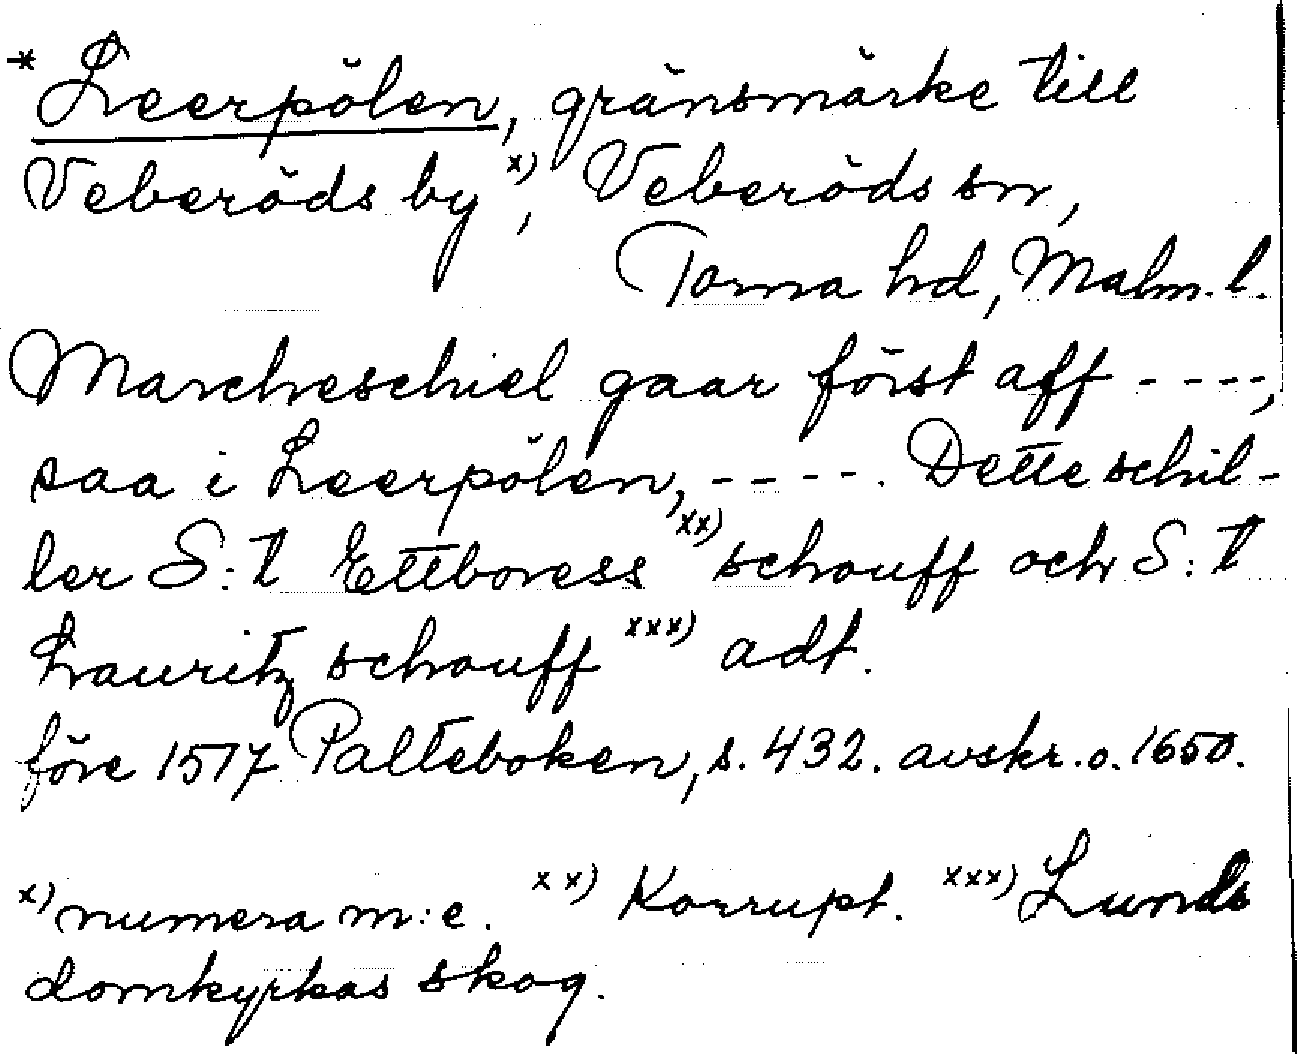 * Leerpölen, gränsmärke till
Veberöds by x), Veberöds sn,
Torna hd, Malm. l.
Marcheschiel gaar först aff ----,
saa i Leerpölen, ----. Dette schil-
ler S:t Ettboress xx) schouff och S:t
Lauritz schouff xxx) adt.
före 1517 Palteboken, s. 432. avskr. o. 1650.
x) numera m:e. xx) Korrupt. xxx) Lunds
domkyrkas skog.